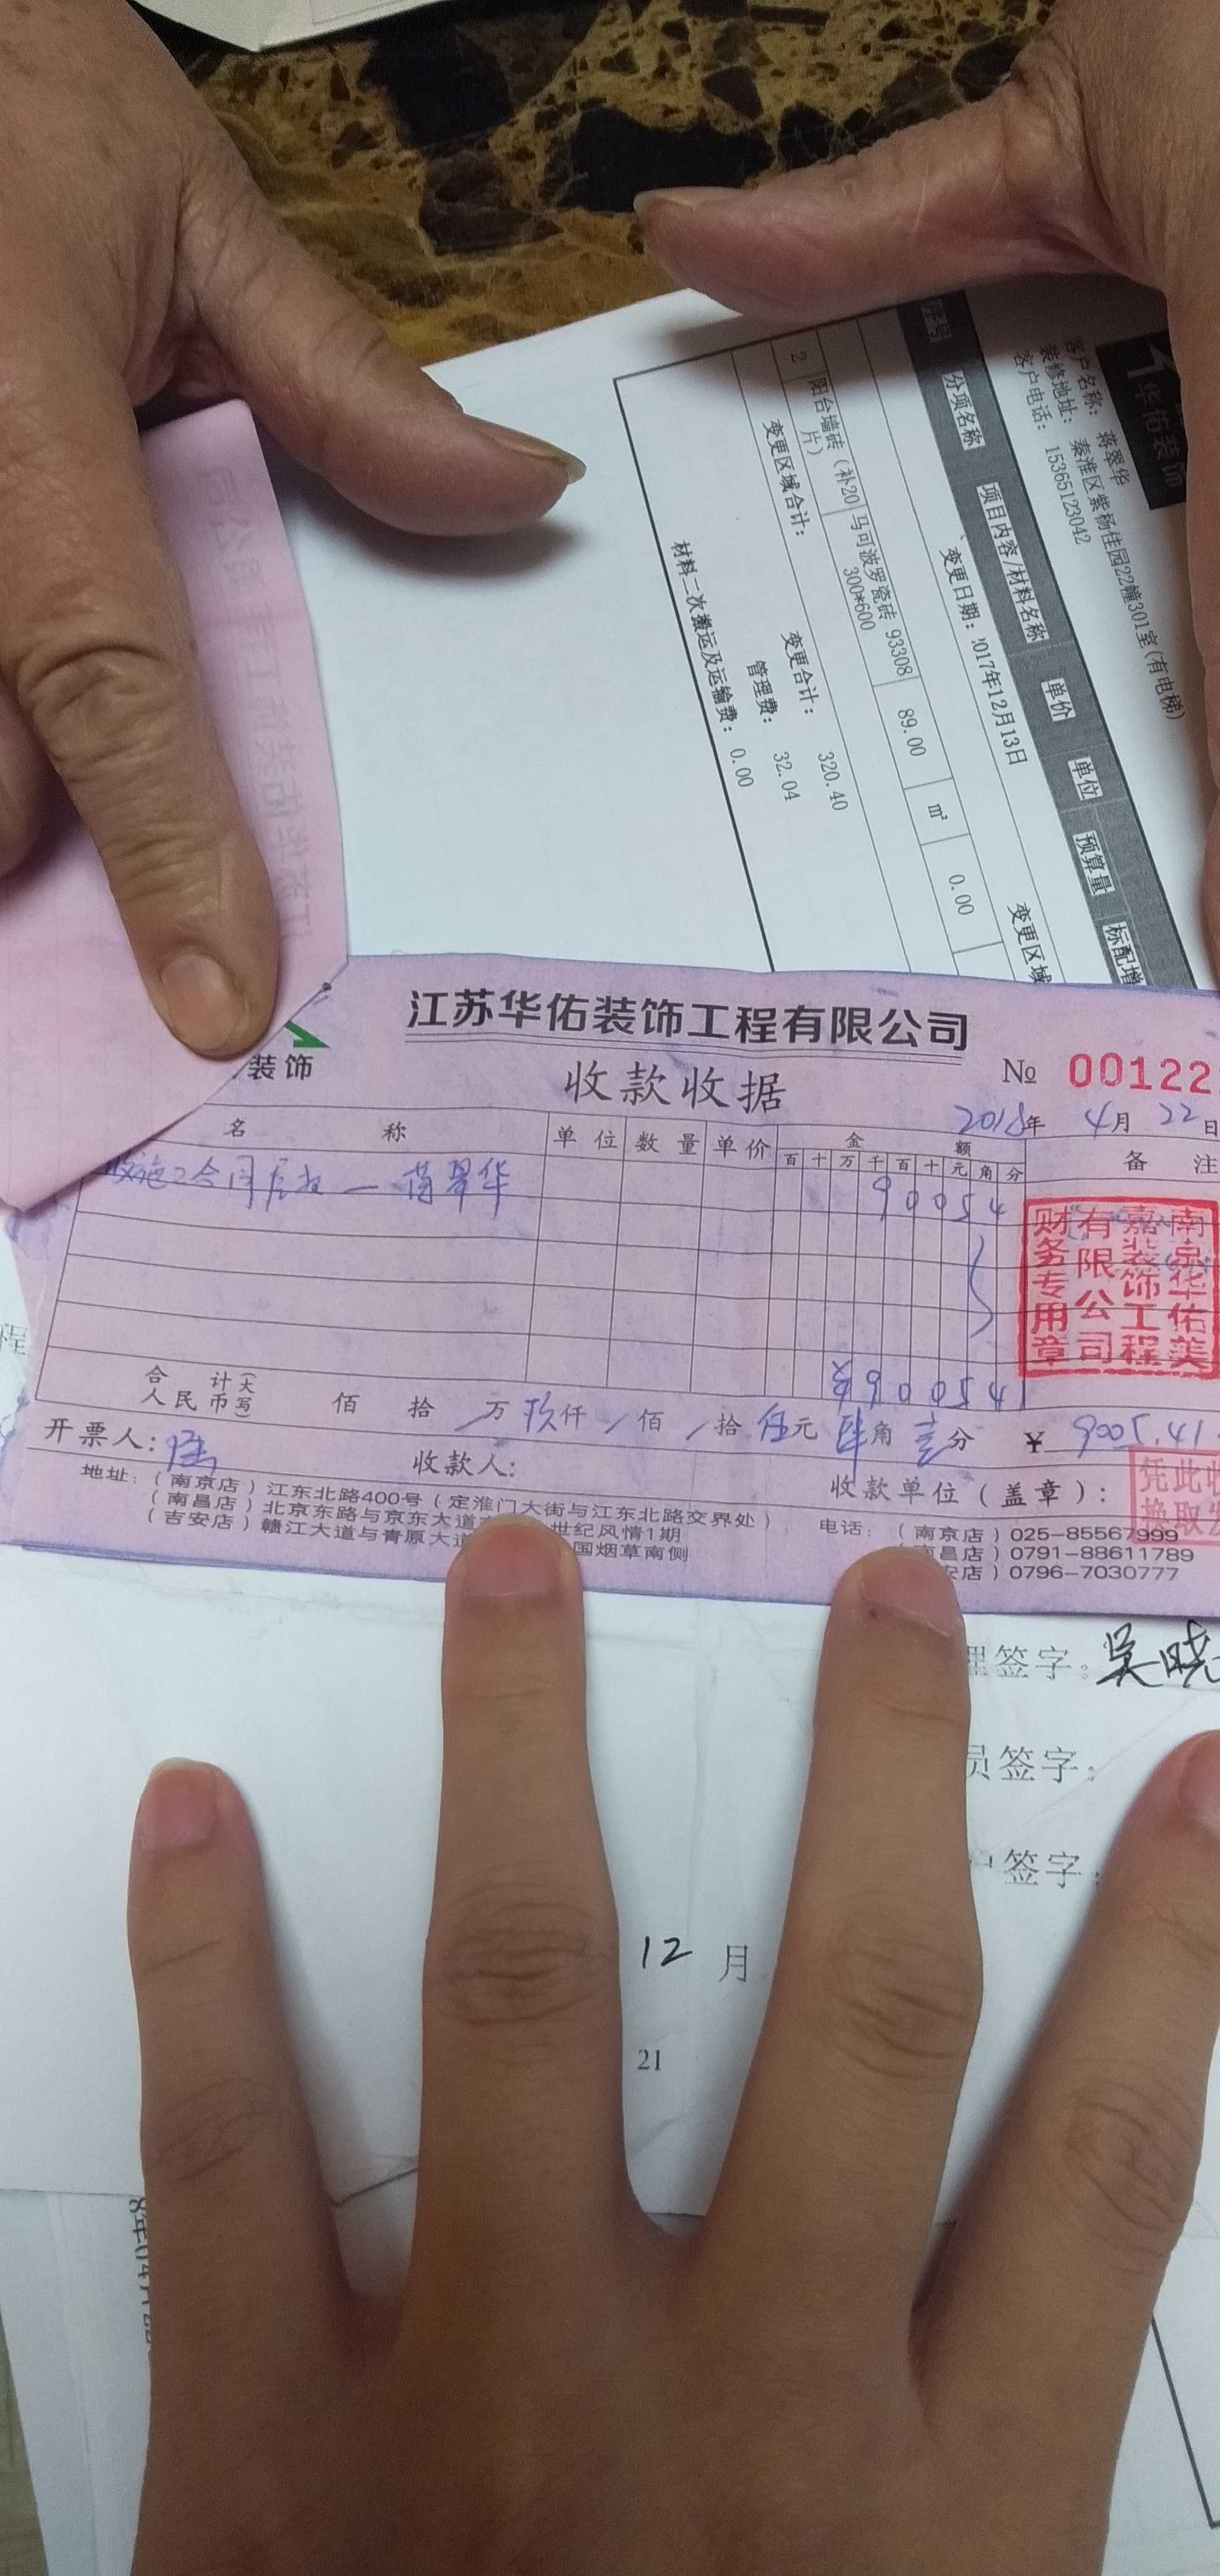 华佑装饰
客户名称： 蒋翠华
装修地址： 秦淮区紫杨佳园22幢301室(有电梯)
客户电话： 15365123042
序号 分项名称 项目内容/材料名称 单价 单位 预算量 标配增
变更日期： 017年12月13日
变更区域
2 阳台墙砖（补20片） 马可波罗瓷砖 93308 300*600 89.00 m² 0.00
变更区域合计：
变更合计： 320.40
管理费： 32.04
材料二次搬运及运输费： 0.00
江苏华佑装饰工程有限公司
装饰
收款收据
№ 00122
2018年 4月 22日
名 称 单位 数量 单价 金额 备注
百 十 万 千 百 十 元 角 分
收施工合同尾款 — 蒋翠华 9 0 0 5 4
南京华佑美
嘉装饰工程
有限公司
财务专用章
¥ 9 0 0 5 4 1
合计(大写)
人民币 佰 拾 / 万 玖仟 / 佰 / 拾 伍元 肆角 壹分 ￥ 9005.41
开票人： 陆 收款人： 收款单位（盖章）：
凭此收
换取发
地址：（南京店）江东北路400号（定淮门大街与江东北路交界处）
（南昌店）北京东路与京东大道 世纪风情1期
（吉安店）赣江大道与青原大道 国烟草南侧
电话：（南京店）025-85567999
昌店）0791-88611789
安店）0796-7030777
程
理签字： 吴晓
员签字：
签字：
12 月
21